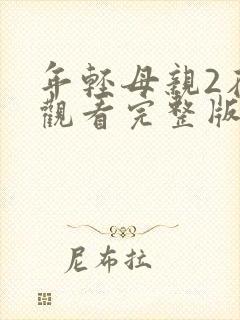 年輕母親2在
觀看完整版
尼布拉